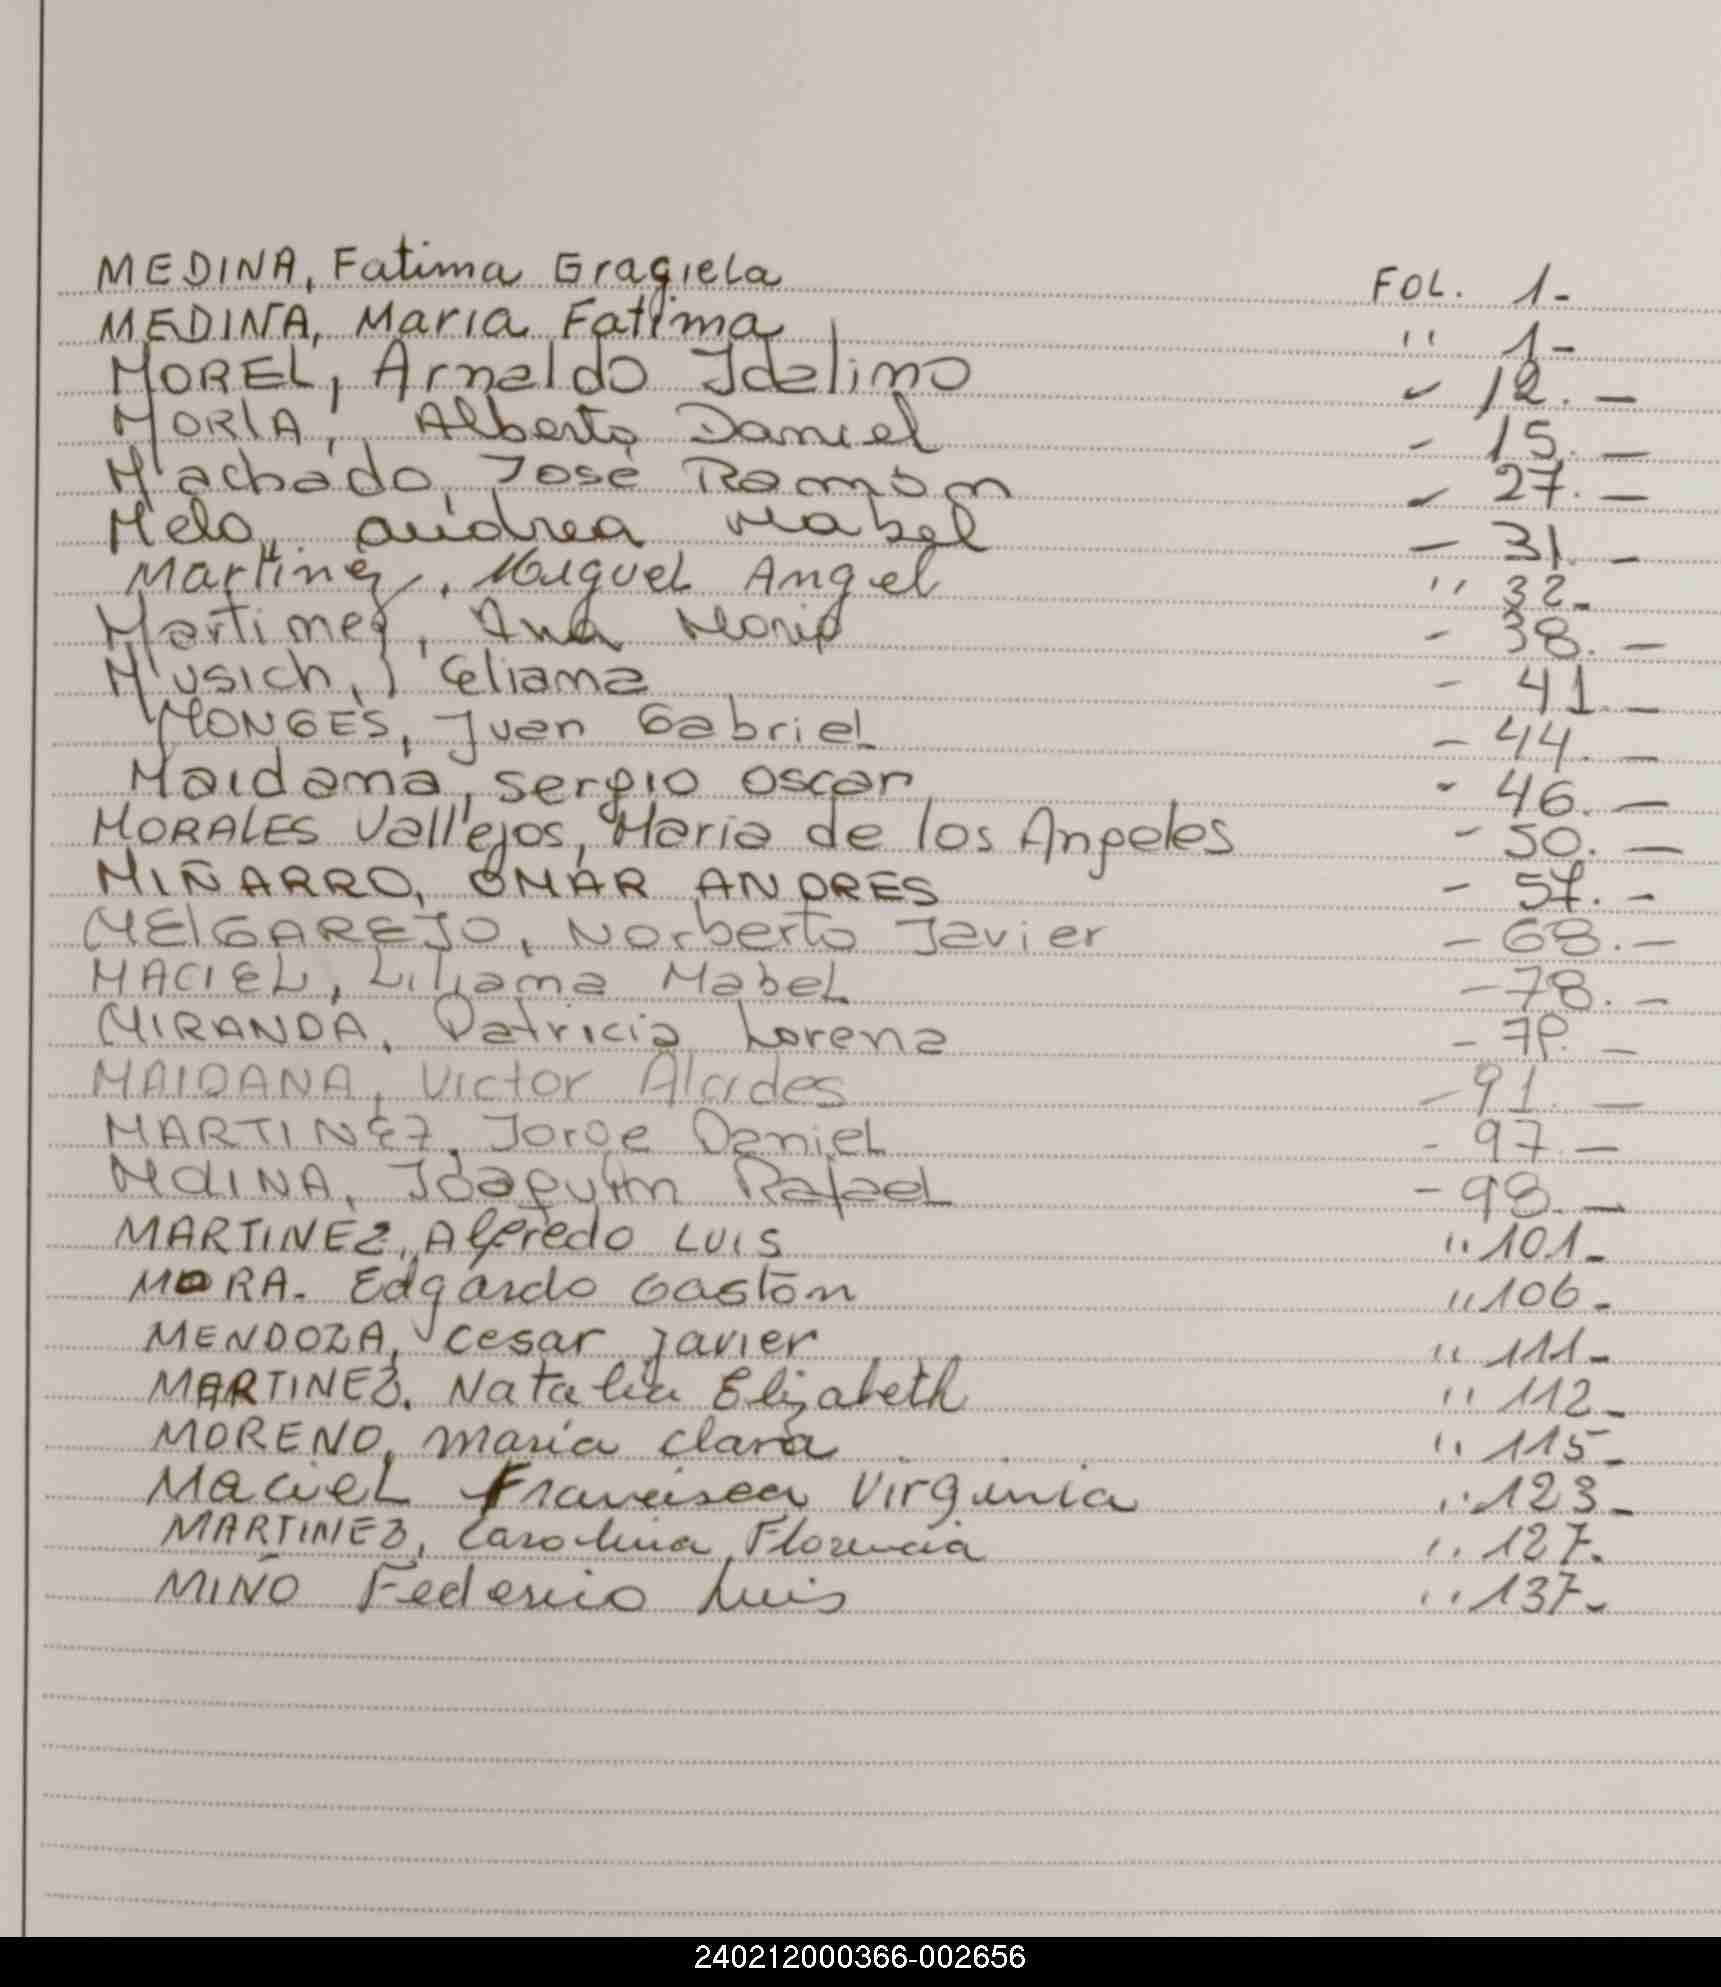 MEDINA, Fatima Graciela FOL. 1-
MEDINA, Maria Fatima '' 1-
MOREL, Arnaldo Idelino - 12. -
MORIA, Alberto Daniel - 15. -
Machado, José Ramón - 27. -
Melo, Andrea Mabel - 31. -
Martinez, Miguel Angel '' 32.-
Martinez, Ana Maria - 38. -
Musich, Eliana - 41. -
MONGES, Juan Gabriel - 44. -
Maidana, Sergio Oscar - 46. -
MORALES Vallejos, Maria de los Angeles - 50. -
MIÑARRO, OMAR ANDRES - 57. -
MElGAREJO, Norberto Javier - 68. -
MACIEL, Liliana Mabel - 78. -
MIRANDA, Patricia Lorena - 79. -
MAIDANA, Victor Alcides - 91. -
MARTINEZ, Jorge Daniel - 97. -
MOLINA, Joaquin Rafael - 98. -
MARTINEZ, Alfredo LUIS '' 101.-
MORA. Edgardo Gastón '' 106.-
MENDOZA, Cesar Javier '' 111-
MARTINEZ. Natalia Elizabeth '' 112-
MORENO, Maria Clara '' 115-
Maciel Francisca Virginia '' 123-
MARTINEZ, Carolina Florencia '' 127.
MIÑO Federico Luis '' 137-
240212000366-002656